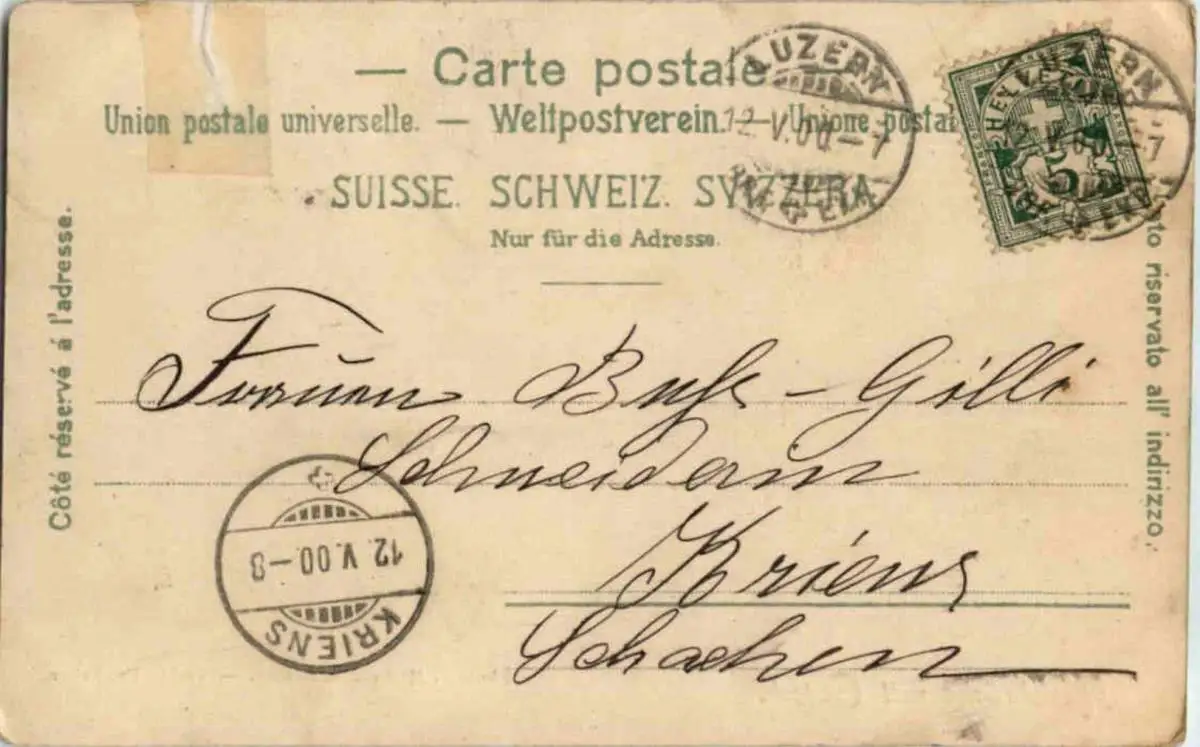 — Carte postale
Union postale universelle. — Weltpostverein. — Unione postal
SUISSE. SCHWEIZ. SVIZZERA
Nur für die Adresse.
Côté réservé á l'adresse.
to riservato all' indirizzo.
LUZERN
12.V.00–7
LUZERN
V.00–7
HELVETIA
5
Frauen Buß - Gilli
Schneiderin
Kriens
Schachen
12.V.00–8
KRIENS